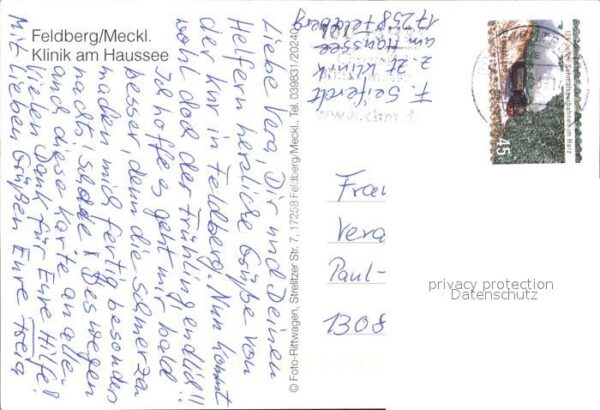 Feldberg/Meckl.
Klinik am Haussee
Liebe Vera, Dir und Deinen
Helfern herzliche Grüße von
der Kur in Feldberg. Nun kommt
wohl doch der Frühling endlich!!
Ich hoffe es geht mir bald
besser denn die Schmerzen
machen mich fertig, besonders
nachts! Schade! Deswegen
auch diese Karte an alle.
Vielen Dank für Eure Hilfe!
Mit lieben Grüßen Eure
© Foto-Rittwagen, Strelitzer Str. 7, 17258 Feldberg/Meckl., Tel. 039831/20240
F. Seiferdt
z. Zt. Klinik
am Haussee
17258 Feldberg
45
Schmalspurbahnen im Harz
Frau
Vera
Paul-
1308
privacy protection
Datenschutz